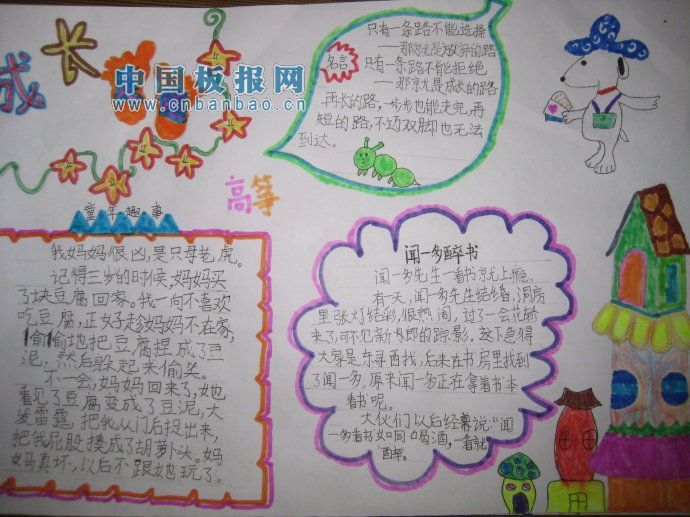 成长
中国板报网
www.cnbanbao.cn
名言
只有一条路不能选择
——那就是放弃的路
只有一条路不能拒绝
——那就是成长的路
再长的路，一步步也能走完，再
短的路，不迈双脚也无法
到达。
高筝
童年趣事
我妈妈很凶，是只母老虎。
记得三岁的时候，妈妈买
了块豆腐回家。我一向不喜欢
吃豆腐，正好趁妈妈不在家，
偷偷地把豆腐捏成了豆
泥，然后躲起来偷笑。
不一会，妈妈回来了，她
看见了豆腐变成了豆泥，大
发雷霆，把我从门后捉出来，
把我屁股揍成了胡萝卜头。妈
妈真坏，以后不跟她玩了。
闻一多醉书
闻一多先生一看书就上瘾。
有一天，闻一多先生结婚，洞房
里张灯结彩，很热闹，过了一会花轿
来了，可不见新郎的踪影。这下急得
大家是东寻西找，后来在书房里找到
了闻一多，原来闻一多正在拿着书本
看书呢。
大伙们以后经常说："闻
一多看书如同喝酒，一看就
醉。